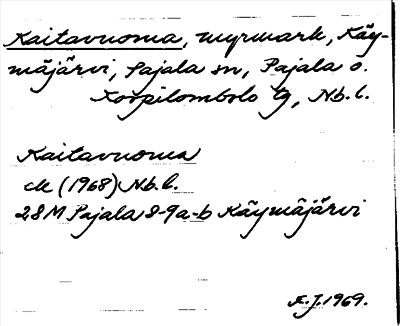 Kaitavuoma, myrmark, Käy-
mäjärvi, Pajala sn, Pajala o.
Korpilombolo tg, Nb. l.
Kaitavuoma
ek (1968) Nb. l.
28M Pajala 8-9a-b Käymäjärvi
E. J. 1969.